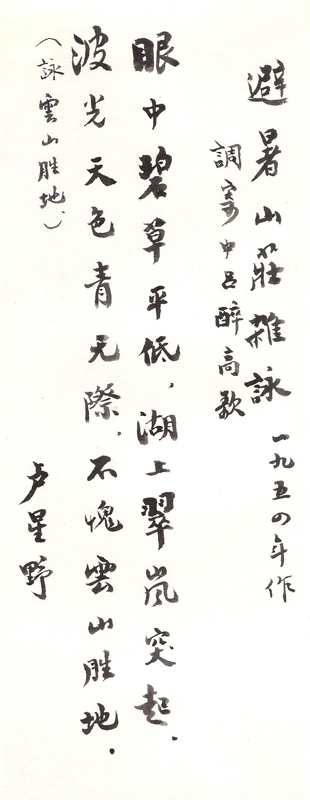 避暑山莊雜詠 一九五四年作
調寄中吕醉高歌
眼中碧草平低，湖上翠嵐突起。
波光天色青无際，不愧雲山胜地。
（詠雲山胜地）
卢星野